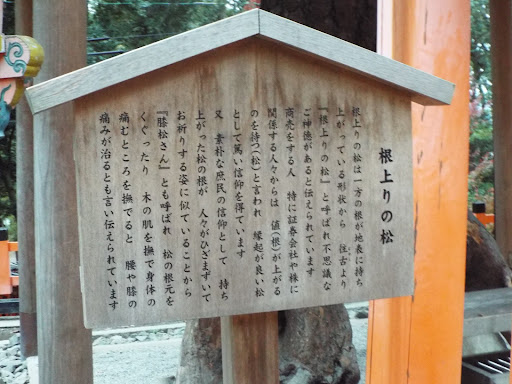 根上りの松
根上りの松は一方の根が地表に持ち
上がっている形状から　往古より
『根上りの松』と呼ばれ不思議な
ご神徳があると伝えられています
商売をする人　特に証券会社や株に
関係する人々からは　値（根）が上がる
のを持つ（松）と言われ　縁起が良い松
として篤い信仰を得ています
又　素朴な庶民の信仰として　持ち
上がった松の根が　人々がひざまずいて
お祈りする姿に似ていることから
『膝松さん』とも呼ばれ　松の根元を
くぐったり　木の肌を撫で身体の
痛むところを撫でると　腰や膝の
痛みが治るとも言い伝えられています